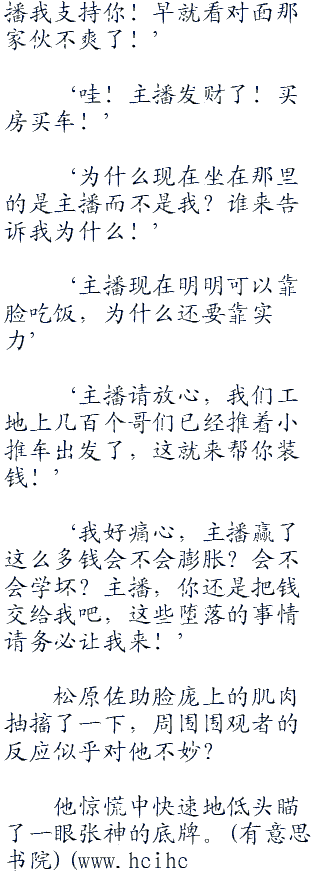 播我支持你！早就看对面那
家伙不爽了！’
‘哇！主播发财了！买
房买车！’
‘为什么现在坐在那里
的是主播而不是我？谁来告
诉我为什么！’
‘主播现在明明可以靠
脸吃饭，为什么还要靠实
力’
‘主播请放心，我们工
地上几百个哥们已经推着小
推车出发了，这就来帮你装
钱！’
‘我好痛心，主播赢了
这么多钱会不会膨胀？会不
会学坏？主播，你还是把钱
交给我吧，这些堕落的事情
请务必让我来！’
松原佐助脸庞上的肌肉
抽搐了一下，周围围观者的
反应似乎对他不妙？
他惊慌中快速地低头瞄
了一眼张神的底牌。(有意思
书院)(www.hcihc